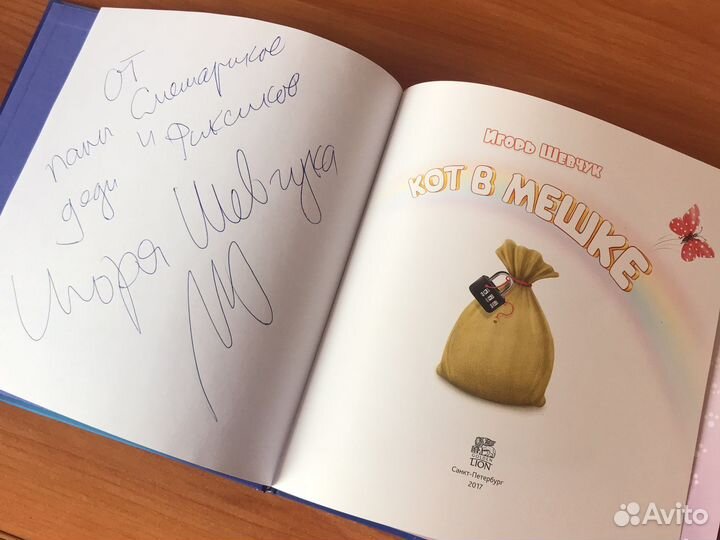 от
папы Смешариков
деди и Фиксиков
Игоря Шевчука
Игорь Шевчук
КОТ В МЕШКЕ
GOLDEN
LION
Санкт-Петербург
2017
Avito